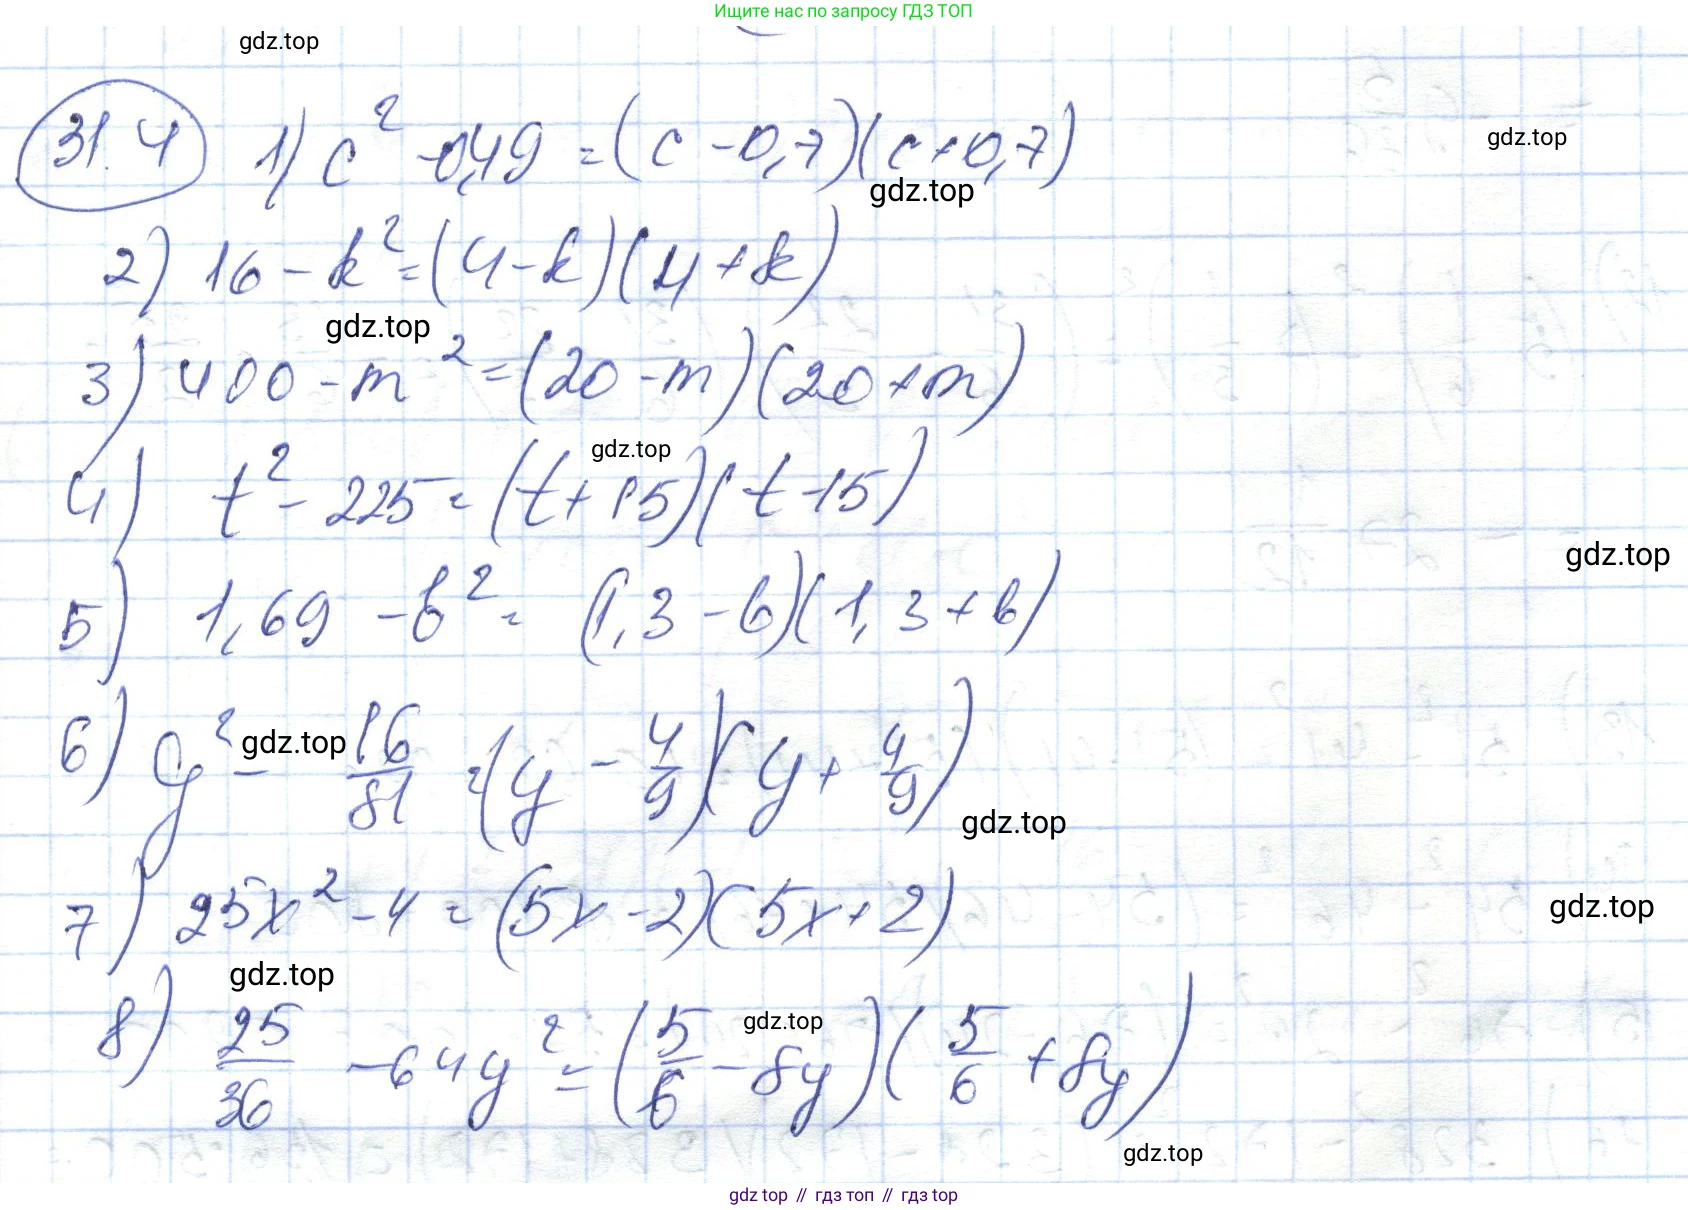 Ищите нас по запросу ГДЗ ТОП
gdz.top
31.4 1) c² - 0,49 = (c - 0,7)(c + 0,7)
gdz.top
gdz.top
2) 16 - k² = (4 - k)(4 + k)
gdz.top
3) 400 - m² = (20 - m)(20 + m)
gdz.top
4) t² - 225 = (t + 15)(t - 15)
gdz.top
5) 1,69 - b² = (1,3 - b)(1,3 + b)
6) y² - 16/81 = (y - 4/9)(y + 4/9)
gdz.top
gdz.top
7) 25x² - 4 = (5x - 2)(5x + 2)
gdz.top
gdz.top
8) 25/36 - 64y² = (5/6 - 8y)(5/6 + 8y)
gdz.top
gdz.top
gdz top // гдз топ // гдз top